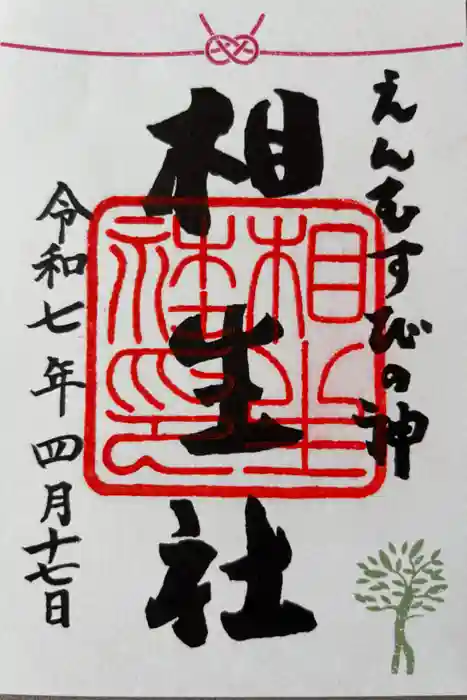 えんむすびの神
相生社
令和七年四月十七日